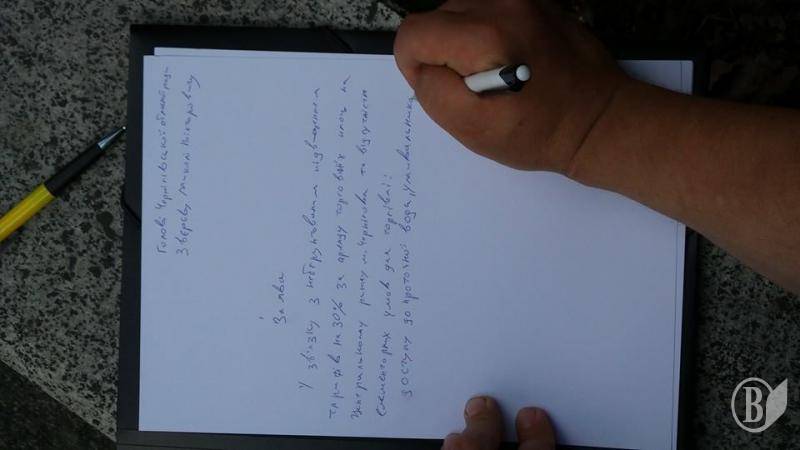 Голові Чернігівської обласної ради
Звєрєву Миколі Вікторовичу
Заява
У звязку з необгрунтованим підвищенням
тарифів на 30% за аренду торгових площ на
Центральному ринку м. Чернігова та відсутність
елементарних умов для торгівлі:
доступу до проточної води, умивальника
В